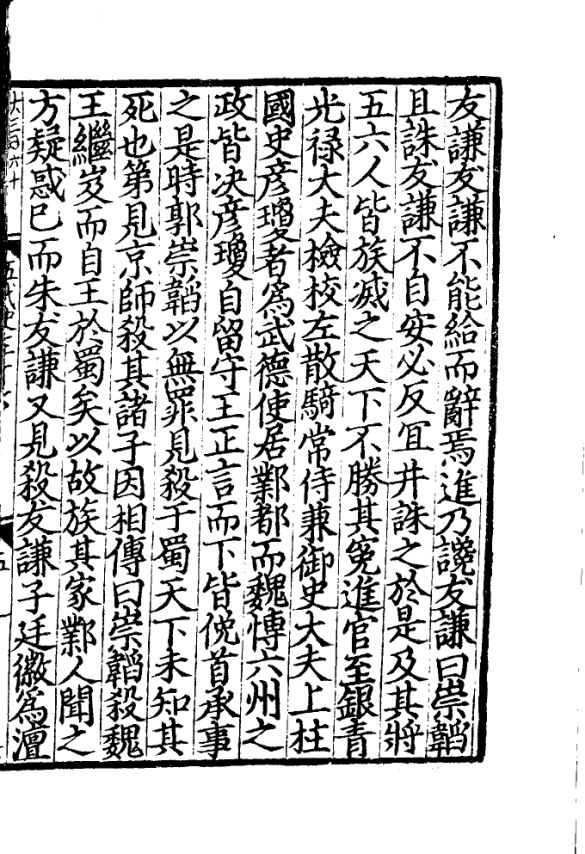 友謙友謙不能給而辭焉進乃讒友謙曰崇韜
且誅友謙不自安必反冝并誅之於是及其將
五六人皆族滅之天下不勝其寃進官至銀青
光禄大夫檢校左散騎常侍兼御史大夫上柱
國史彦瓊者爲武德使居鄴都而魏愽六州之
政皆决彦瓊自留守王正言而下皆俛首承事
之是時郭崇韜以無罪見殺于蜀天下未知其
死也第見京師殺其諸子因相傳曰崇韜殺魏
王繼岌而自王於蜀矣以故族其家鄴人聞之
方疑惑已而朱友謙又見殺友謙子廷徽爲澶
五